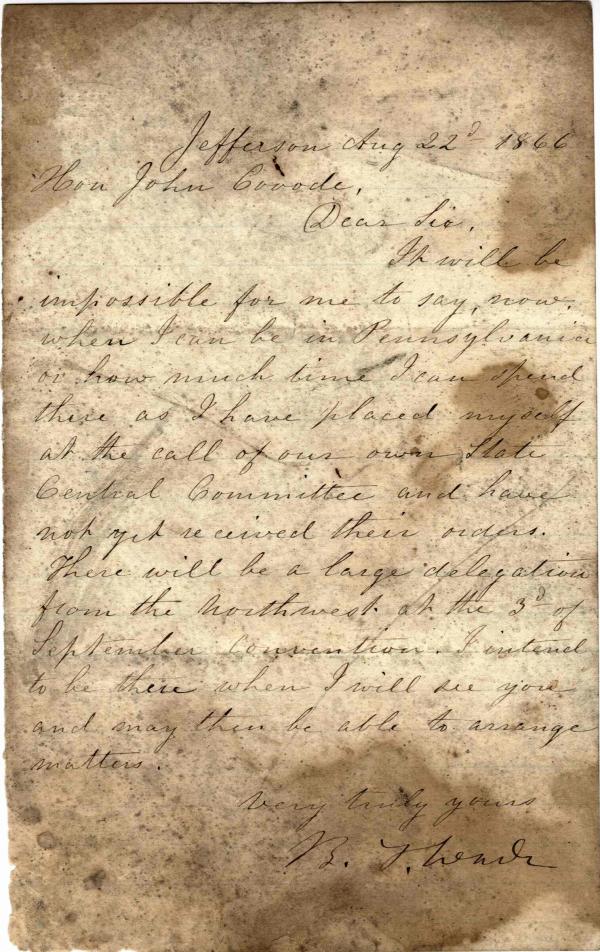 Jefferson Aug 22d 1866
Hon John Covode,
Dear Sir,
It will be
impossible for me to say, now,
when I can be in Pennsylvania
or how much time I can spend
there as I have placed myself
at the call of our own State
Central Committee and have
not yet received their orders.
There will be a large delegation
from the Northwest at the 3d of
September convention. I intend
to be there when I will see you
and may then be able to arrange
matters.
Very truly yours
B. F. Wade